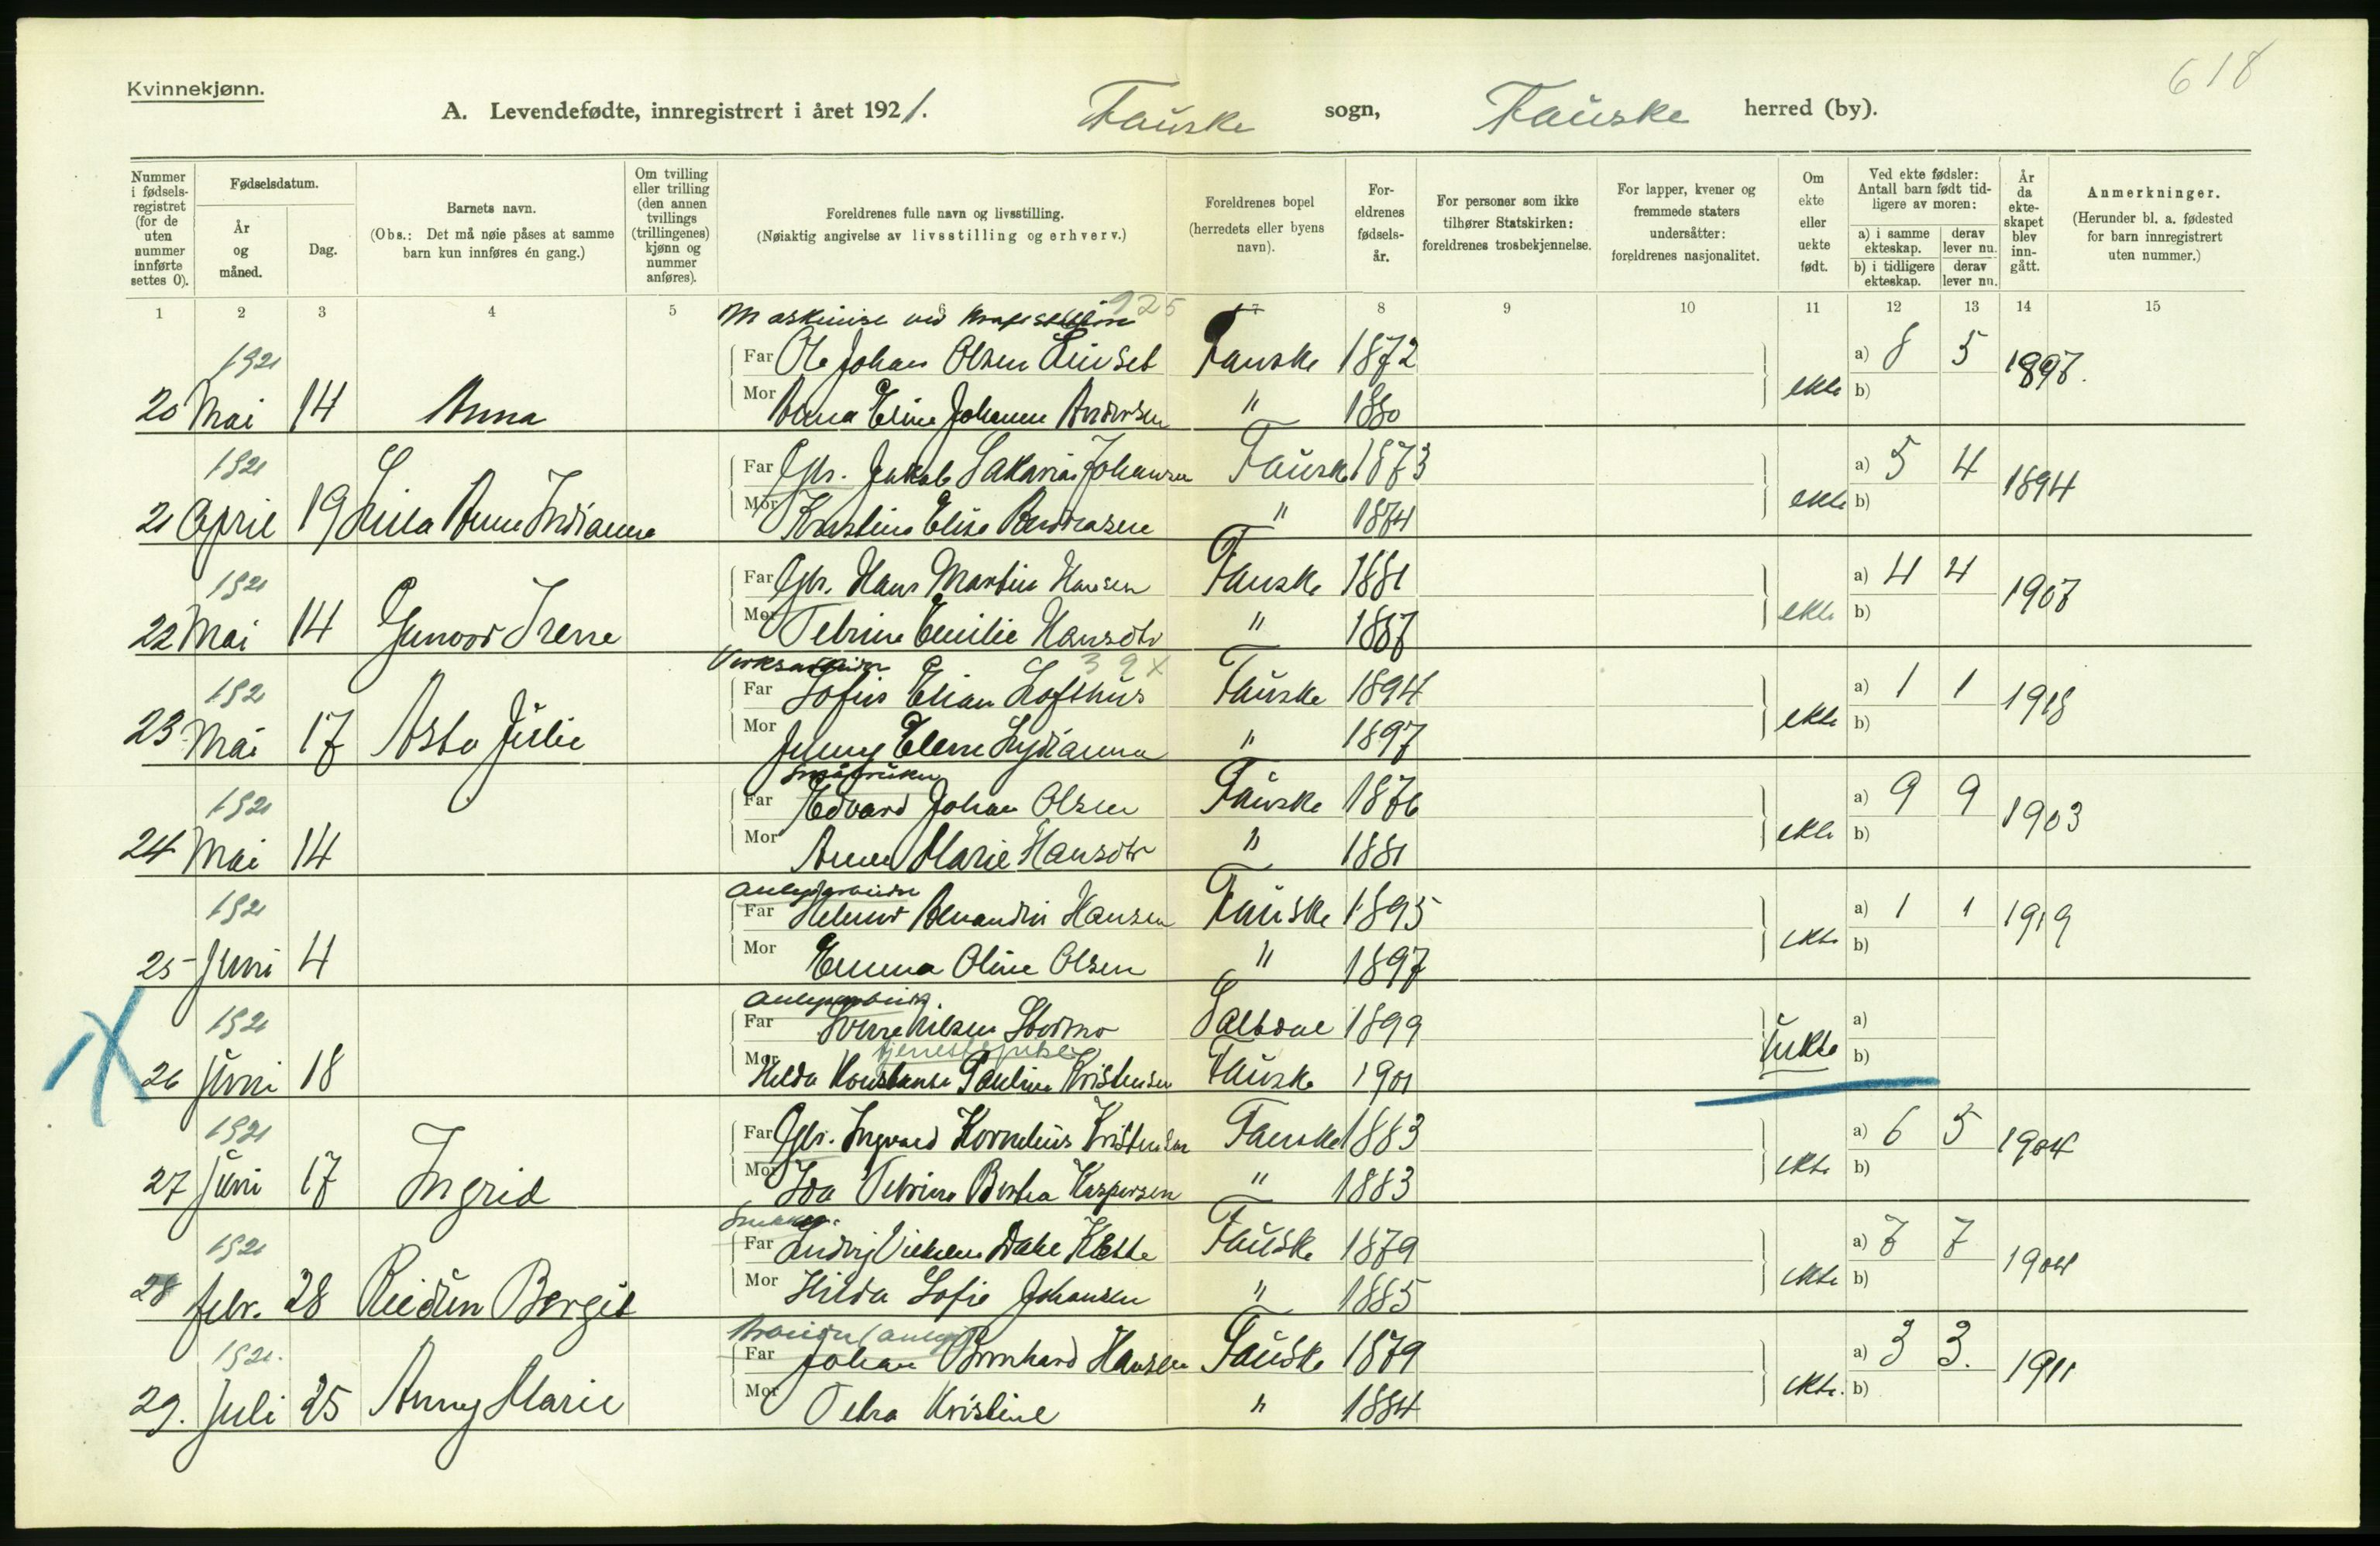 618
Kvinnekjønn.
A. Levendefødte, innregistrert i året 1921. Fauske sogn, Fauske herred (by).
Nummer i fødselsregistret (for de uten nummer innførte settes 0).
Fødselsdatum.
År og måned.
Dag.
Barnets navn.
(Obs.: Det må nøie påses at samme barn kun innføres én gang.)
Om tvilling eller trilling (den annen tvillings (trillingenes) kjønn og nummer anføres).
Foreldrenes fulle navn og livsstilling.
(Nøiaktig angivelse av livsstilling og erhverv.)
Foreldrenes bopel (herredets eller byens navn).
Foreldrenes fødselsår.
For personer som ikke tilhører Statskirken: foreldrenes trosbekjennelse.
For lapper, kvener og fremmede staters undersåtter: foreldrenes nasjonalitet.
Om ekte eller uekte født.
Ved ekte fødsler: Antall barn født tidligere av moren:
a) i samme ekteskap. derav lever nu.
b) i tidligere ekteskap. derav lever nu.
År da ekteskapet blev inngått.
Anmerkninger.
(Herunder bl. a. fødested for barn innregistrert uten nummer.)
1 2 3 4 5 6 7 8 9 10 11 12 13 14 15
Maskinist ved 925
1921 Far Ole Johan Olsen Fauske 1872 a) 8 5 1897
20 Mai 14 Anna Mor Anna Eline Andersen " 1880 ekte b)
1921 Far Gbr. Jakob Sakarias Johansen Fauske 1873 a) 5 4 1894
21 April 19 Mor Kristine Elise " 1874 ekte b)
1921 Far Gbr. Hans Martin Hansen Fauske 1881 a) 4 4 1907
22 Mai 14 Gunvor Irene Mor Petrine Emilie Hansdtr " 1887 ekte b)
39 x
192 Far Sofus Elian Lofthus Fauske 1894 a) 1 1 1918
23 Mai 17 Asta Julie Mor Jenny Elene Lydianna " 1897 ekte b)
Småbruker
1921 Far Edvard Johan Olsen Fauske 1876 a) 9 9 1903
24 Mai 14 Mor Anna Marie Hansdtr " 1881 ekte b)
Anleggsarbeider
1921 Far Helmer Hansen Fauske 1895 a) 1 1 1919
25 Juni 4 Mor Emma Oline Olsen " 1897 ekte b)
1921 Far Sverre Nilsen Stormo Saltdal 1899 a)
tjenestepike
X 26 Juni 18 Mor Hilda Konstanse Pauline Kristensen Fauske 1901 uekte b)
1921 Far Gbr. Ingvard Kornelius Kristensen Fauske 1883 a) 6 5 1904
27 Juni 17 Ingrid Mor Ida Petrine Berta Kaspersen " 1883 ekte b)
Snekker.
1921 Far Ludvig Dahl Fauske 1879 a) 7 7 1904
28 febr. 28 Reidun Bergit Mor Hilda Sofie Johansen " 1885 ekte b)
Arbeider (anlegg)
1921. Far Johan Bernhard Hansen Fauske 1879 a) 3 3. 1911
29. Juli 25 Anny Marie Mor Petra Kristine " 1884 ekte. b)